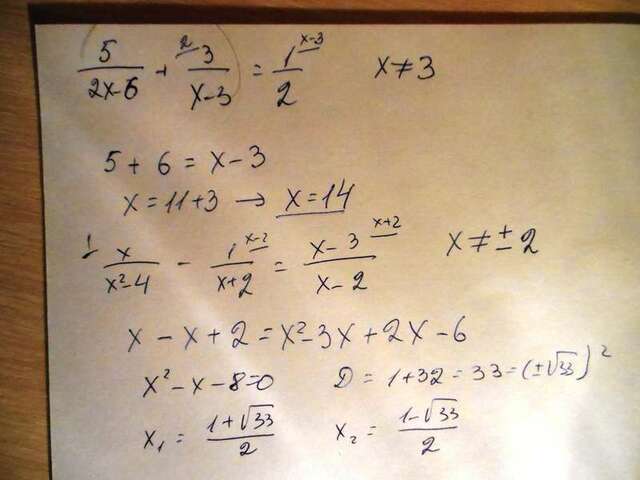 5/(2x-6) + 3/(x-3) ^2 = 1/2 ^x-3 x ≠ 3
5 + 6 = x - 3
x = 11 + 3 → x = 14
1 x/(x²-4) - 1/(x+2) ^x-2 = (x-3)/(x-2) ^x+2 x ≠ ± 2
x - x + 2 = x² - 3x + 2x - 6
x² - x - 8 = 0 D = 1 + 32 = 33 = (±√33)²
x₁ = (1+√33)/2 x₂ = (1-√33)/2